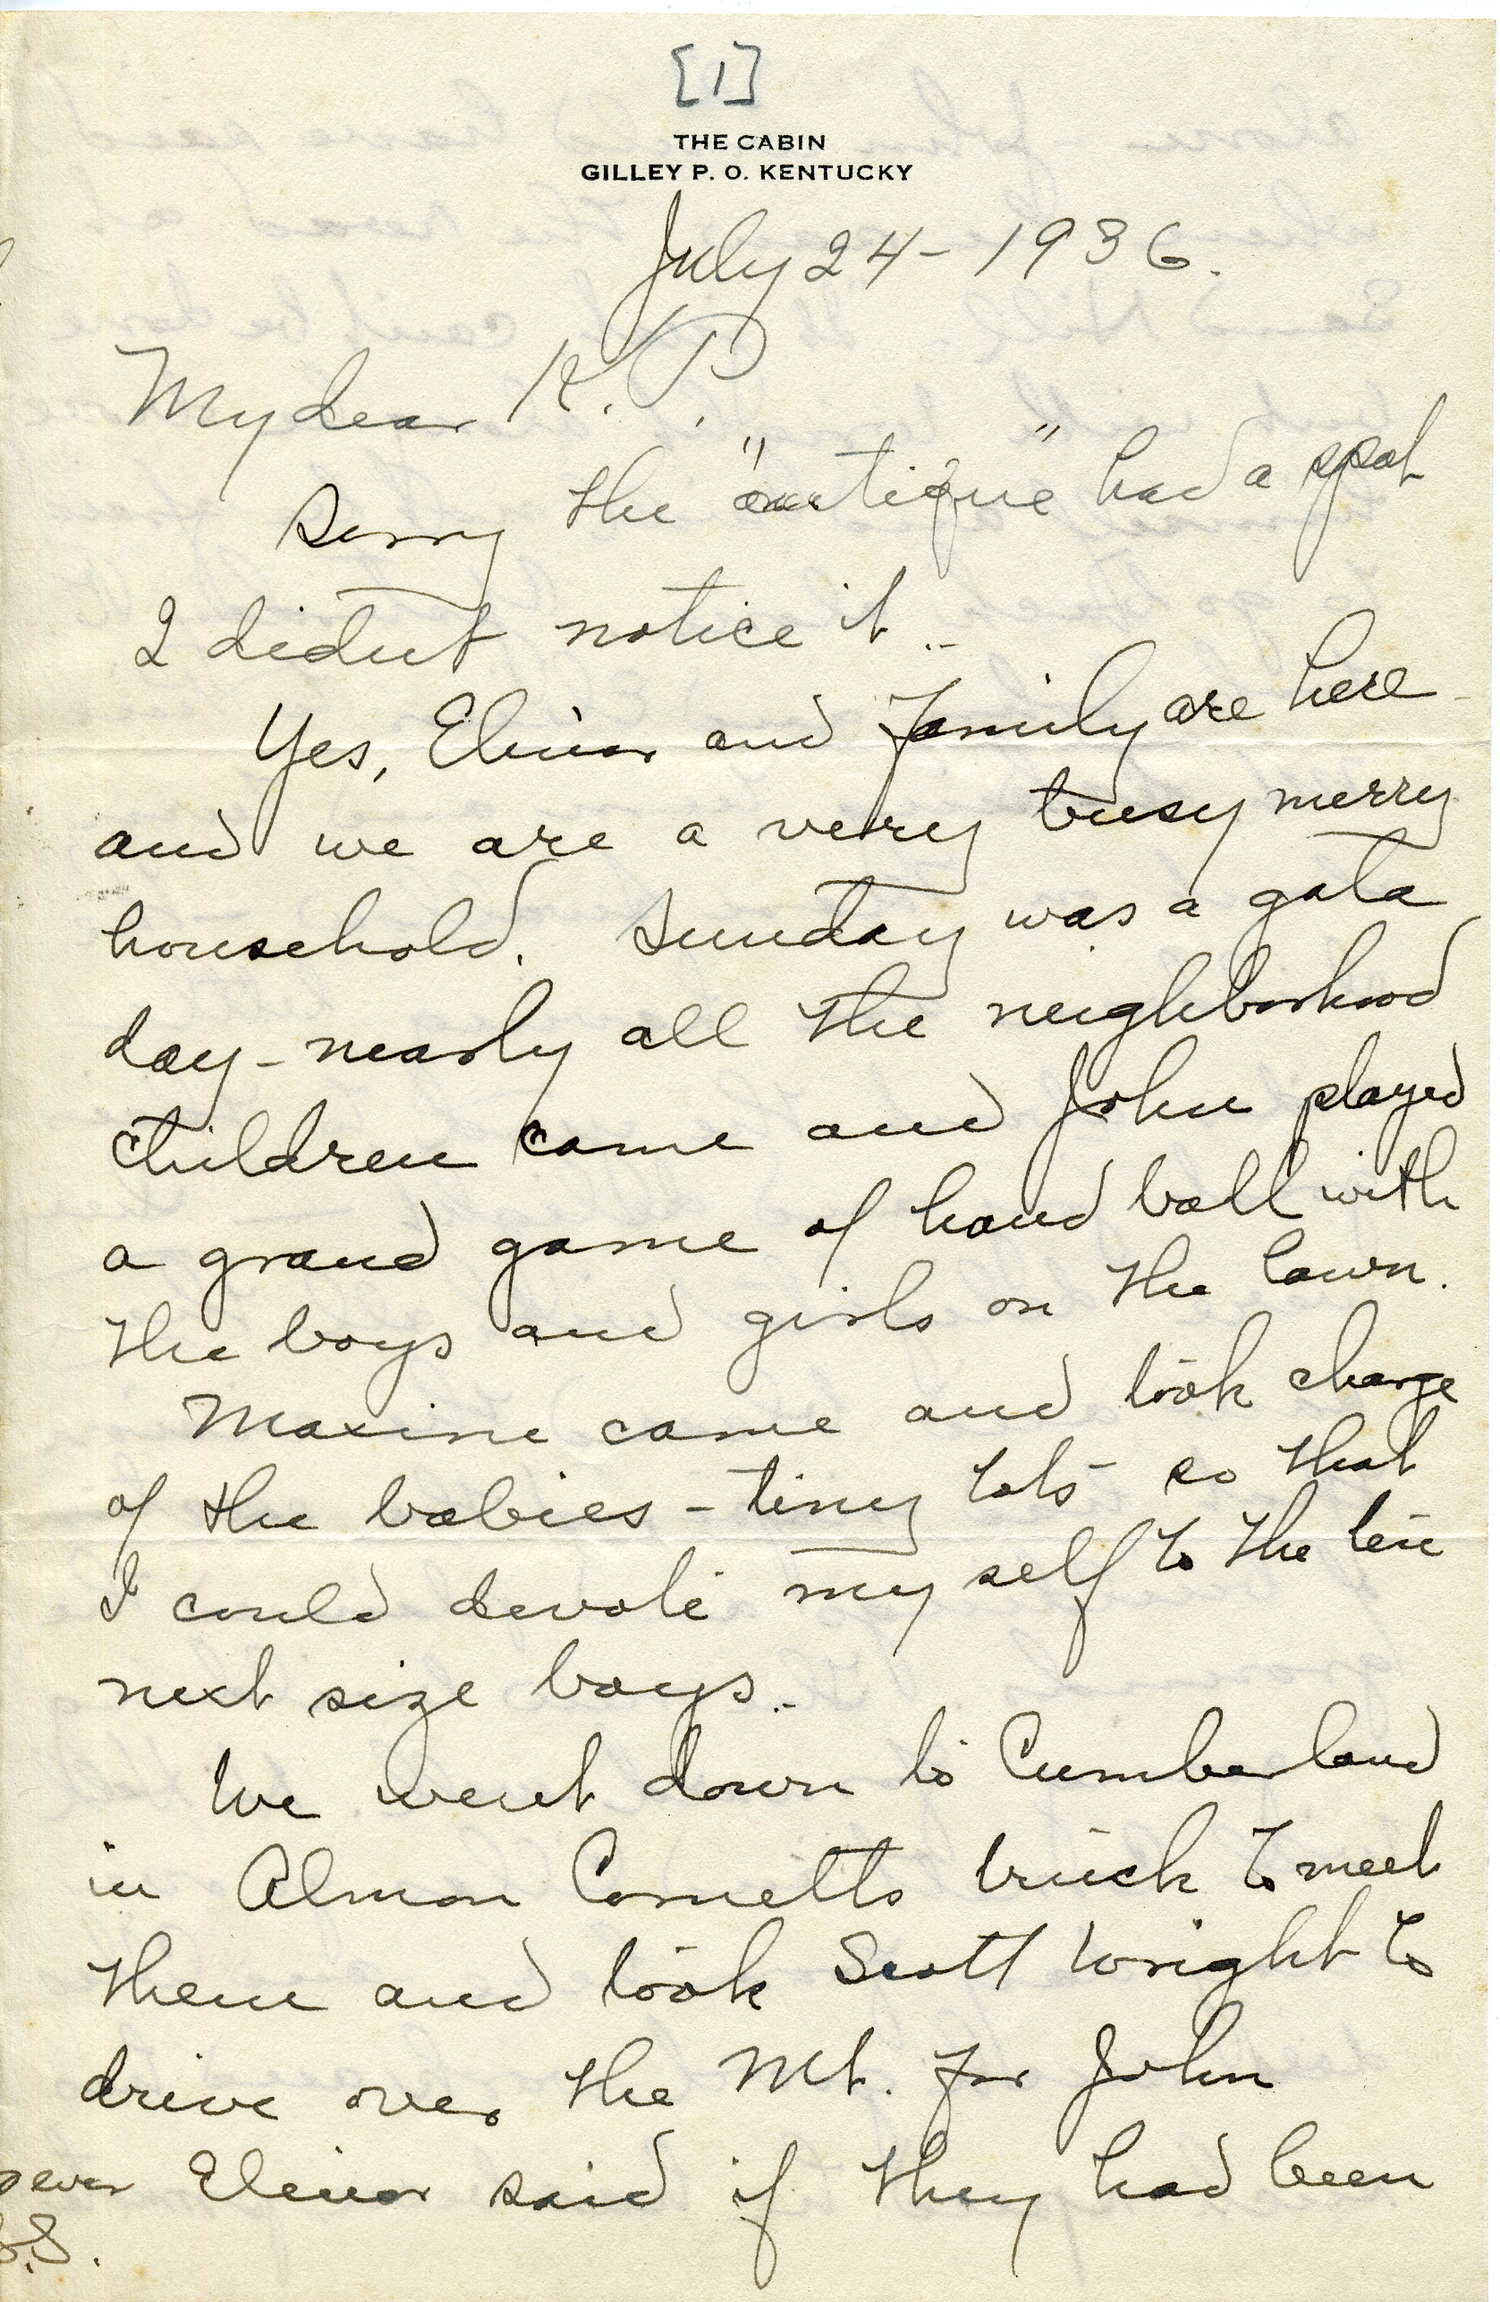 [1]
THE CABIN
GILLEY P. O. KENTUCKY
July 24 - 1936.
My dear K. P.
Sorry the "antique" had a spot
I didn't notice it..
Yes, Elinor and family are here
and we are a very busy merry
household. Sunday was a gala
day - nearly all the neighborhood
children came and John played
a grand game of hand ball with
the boys and girls on the lawn.
Maxine came and took charge
of the babies - tiny tots - so that
I could devote my self to the
next size boys..
We went down to Cumberland
in Almon Cornetts truck to meet
them and took Scott Wright to
drive over the Mt. for John
Elinor said if they had been